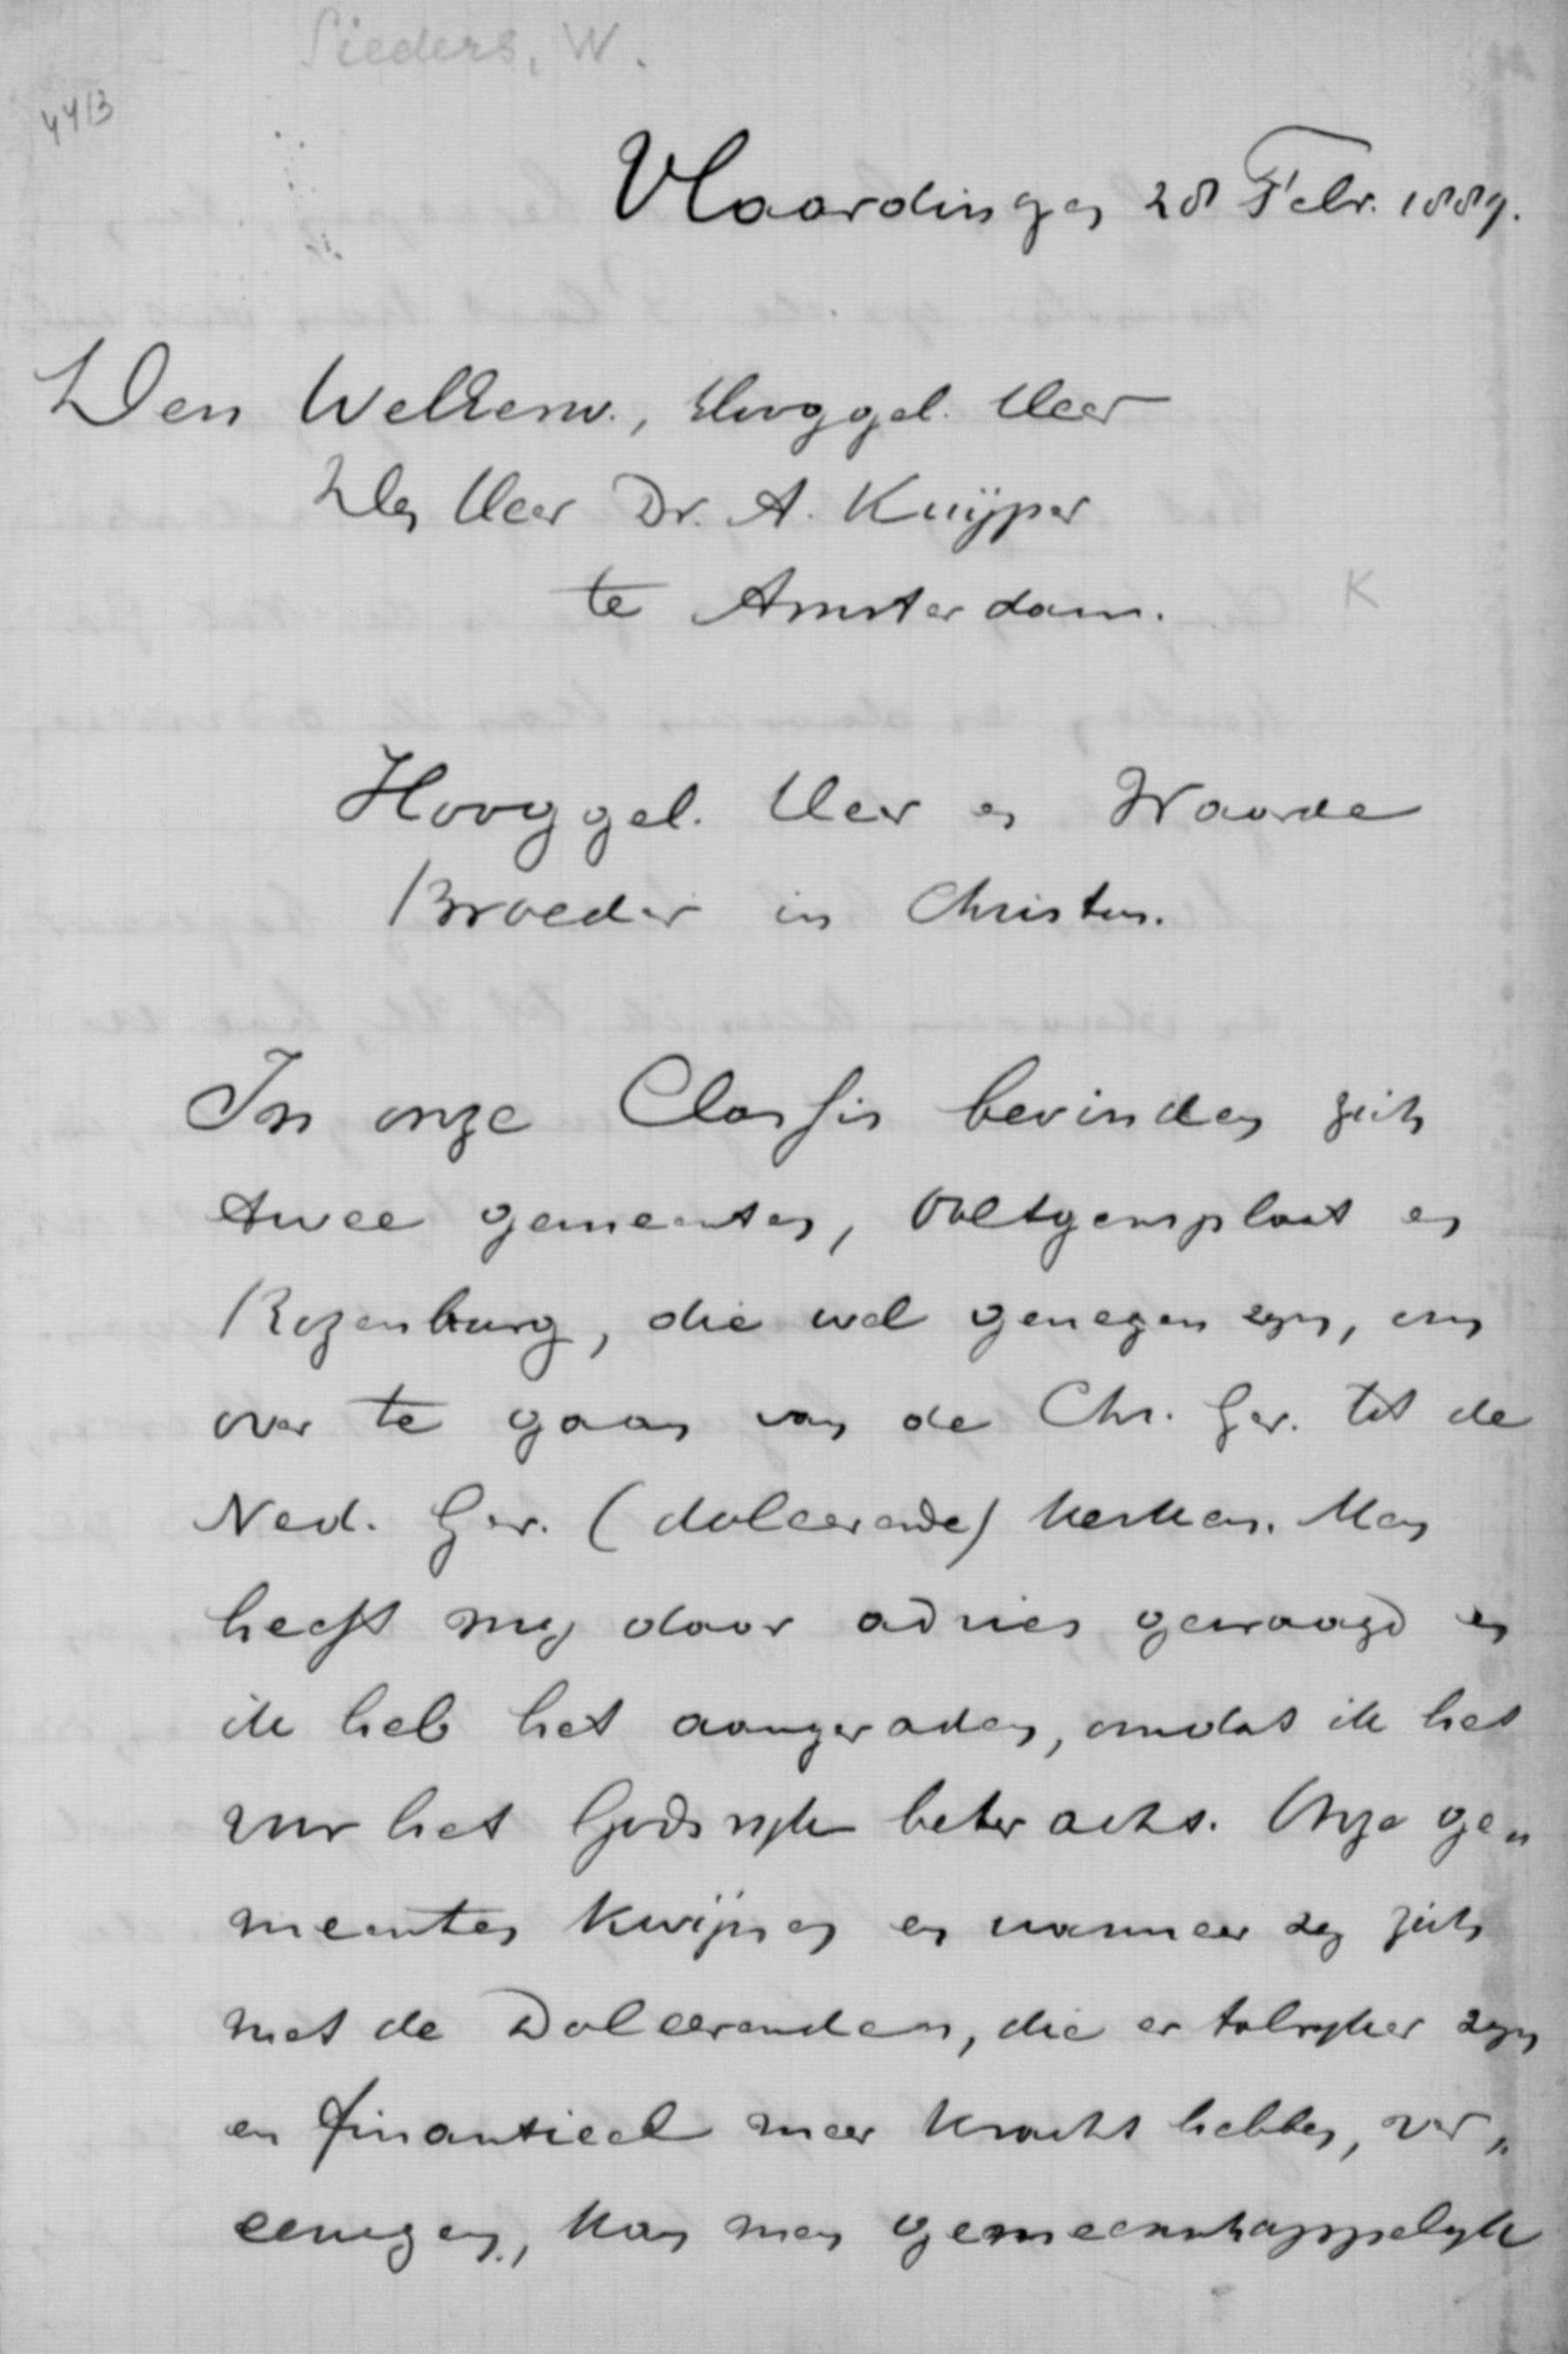 Sieders, W.
4413
Vlaardingen 28 Febr. 1889.
Den WelEerw., Hooggel. Heer
Den Heer Dr. A. Kuÿper
te Amsterdam.
K
Hooggel. Heer en Waarde
Broeder in Christus.
In onze Classis bevinden zich
twee gemeenten, Ooltgensplaat en
Rozenburg, die wel genegen zyn, om
over te gaan van de Chr. Ger. tot de
Ned. Ger. (doleerende) Kerken. Men
heeft my daar advies gevraagd en
ik heb het aangeraden, omdat ik het
voor het Godsryk beter acht. Onze ge„
meenten kwijnen en wanneer zy zich
met de Doleerenden, die er talryker zyn
en finantieel meer kracht hebben, ver„
eenigen, kan men gemeenschappelyk